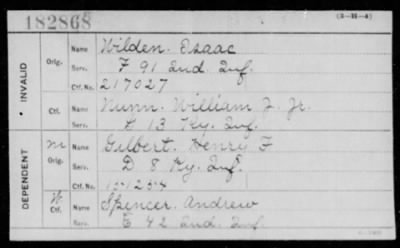 182868
(3-H-4)
INVALID
Orig.
Name Wilden. Isaac
Serv. F 91 Ind. Inf.
Ctf. No. 217027
Ctf.
Name Nunn. William J. Jr.
Serv. 13 Ky. Inf.
DEPENDENT
m
Orig.
Name Gilbert. Henry F
Serv. D 8 Ky. Inf.
Ctf. No.
Ctf.
Name Spencer. Andrew
Serv. E 42 Ind. Inf.